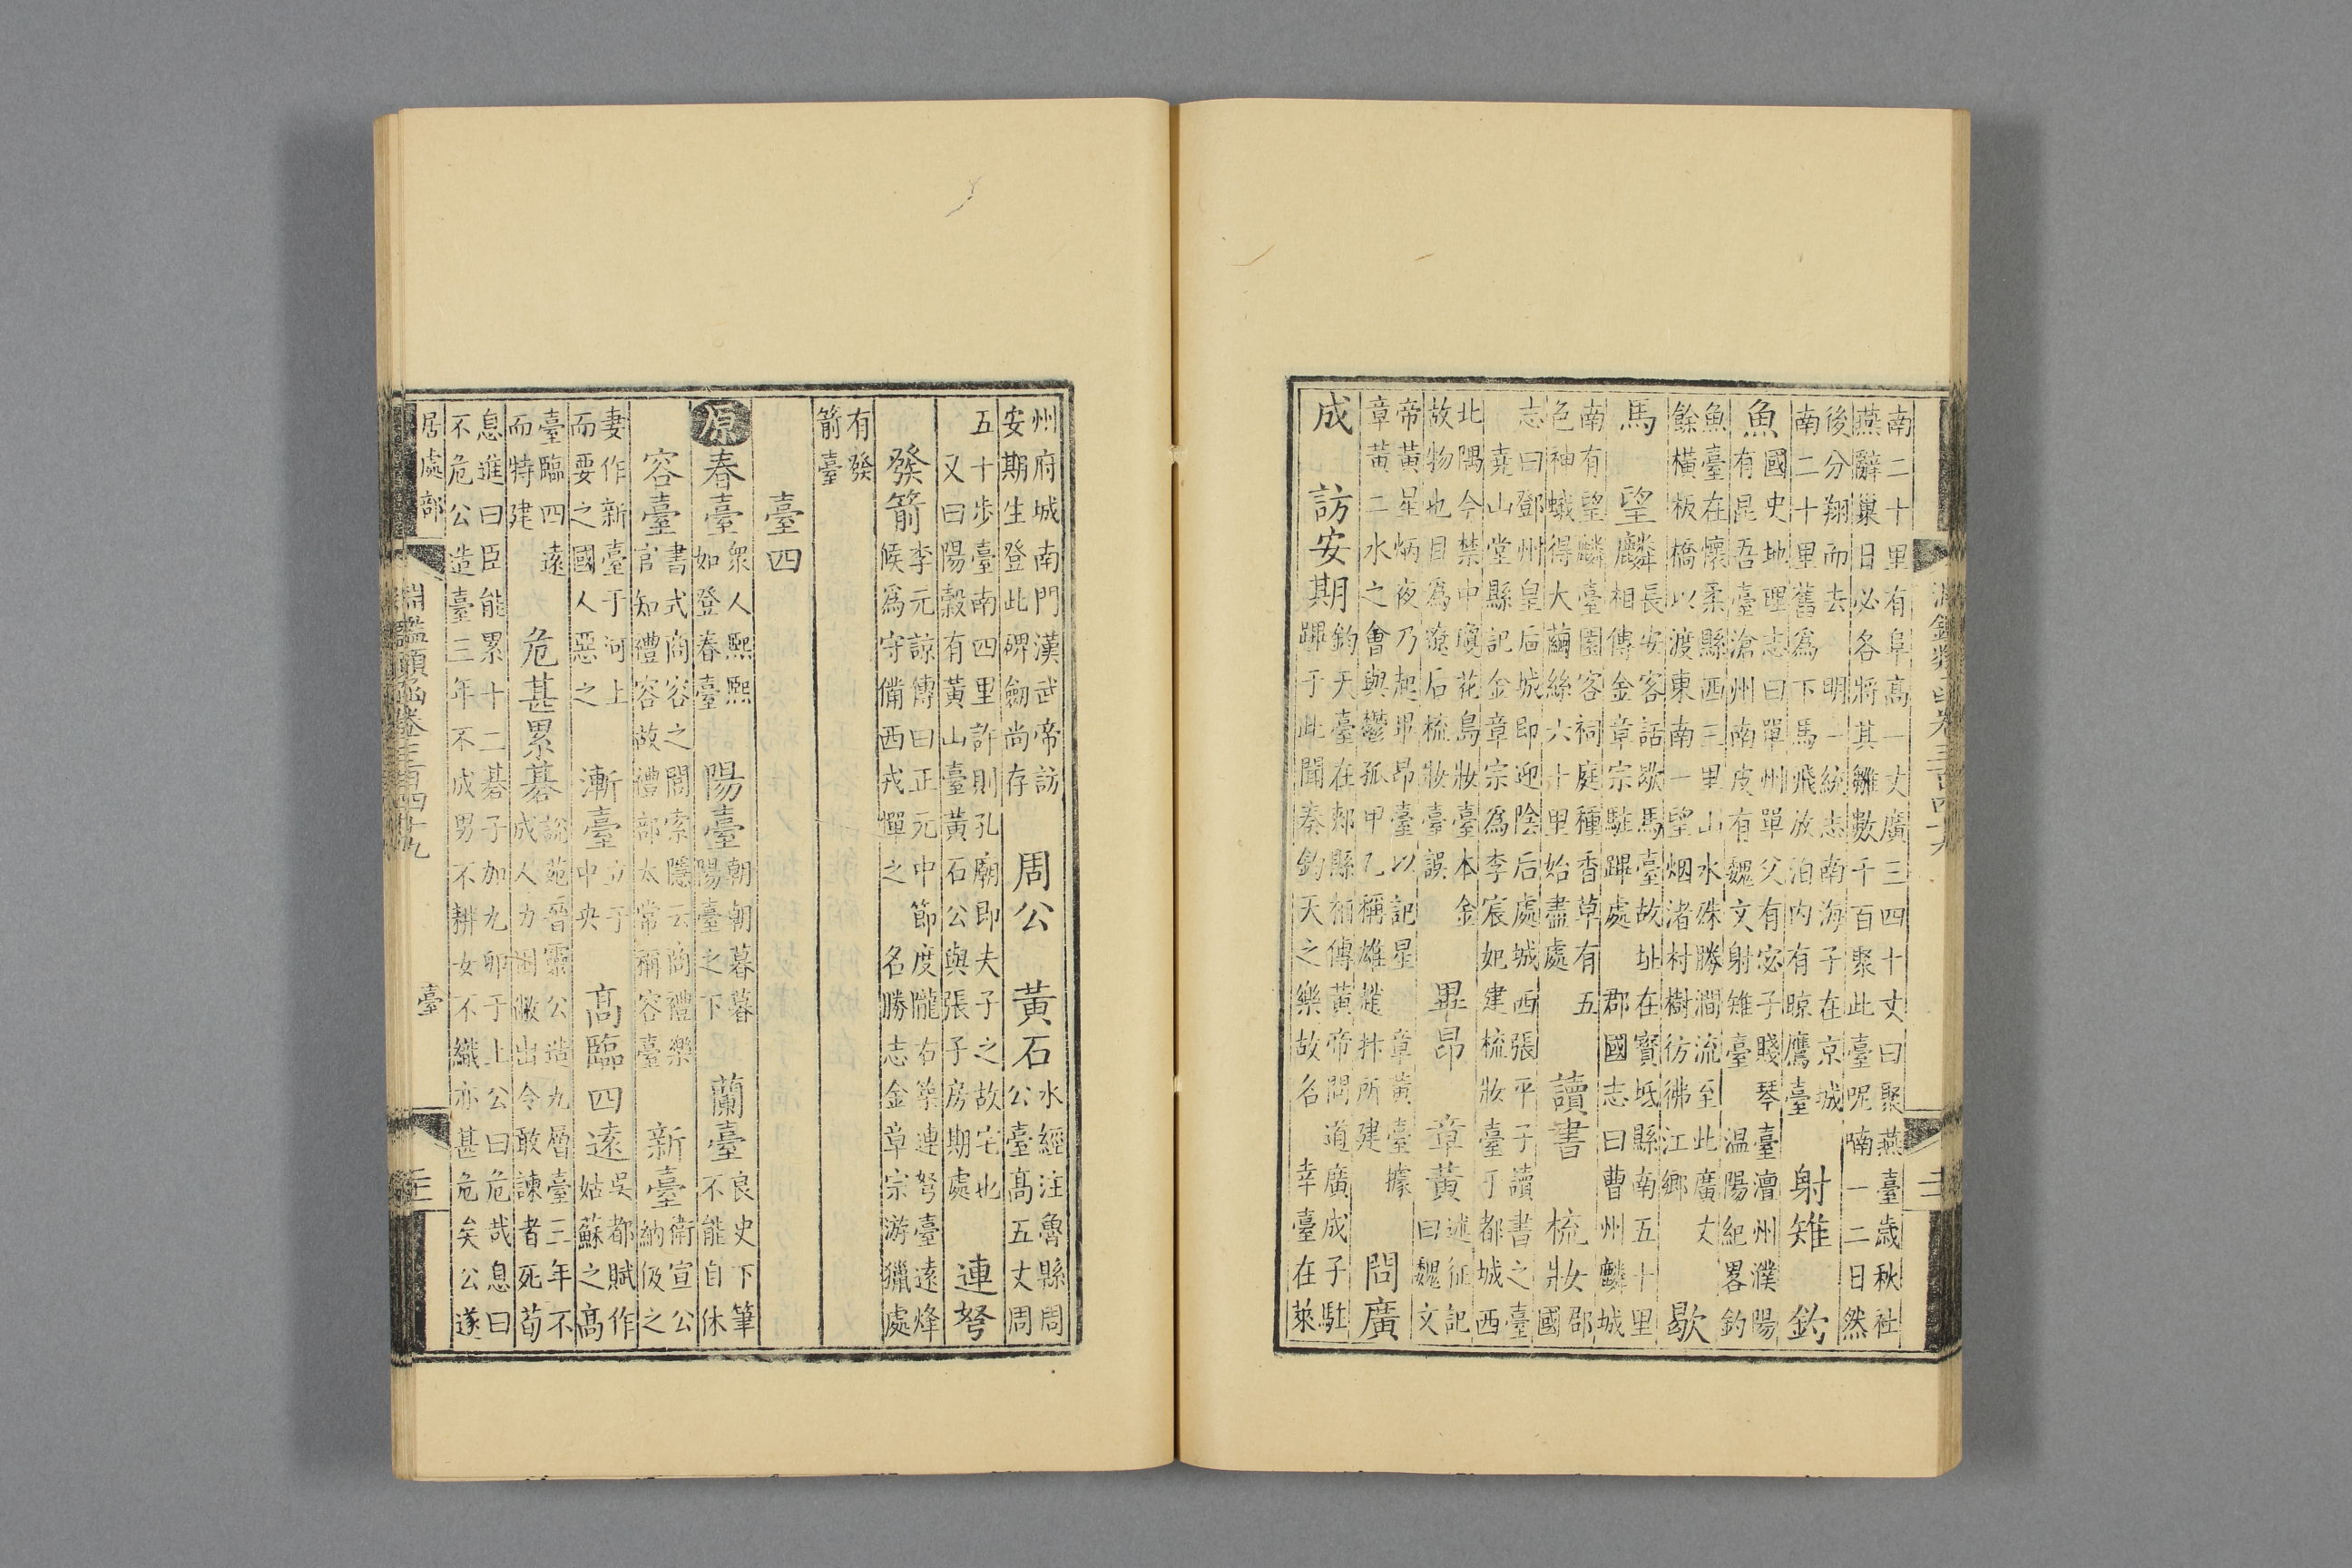 南二十里有阜高一丈廣三四十丈曰聚燕臺歲秋社
燕辭巢日必各將其雛數千百聚此臺呢喃一二日然
後分翔而去 明一統志南海子在京城
南二十里舊為下馬飛放泊内有晾鷹臺
射雉 釣
魚
國史地理志曰單州單父有宓子賤琴臺澶州濮陽
有昆吾臺滄州南皮有魏文射雉臺 温陽紀畧釣
魚臺在懷柔縣西三里山水殊勝澗流至此廣丈
餘橫板橋以渡東南一望烟渚村樹彷彿江鄉
歇
馬 望麟
長安客話歇馬臺故址在寳坻縣南五十里
相傳金章宗駐蹕處 郡國志曰曹州麟城
南有望麟臺園客祠庭種香草有五
色神蛾得大繭絲六十里始盡處
讀書 梳妝
郡
國
志曰鄧州皇后城即迎陰后處城西張平子讀書之臺
堯山堂縣記金章宗為李宸妃建梳妝臺于都城西
北隅今禁中瓊花島妝臺本金
故物也目為遼后梳妝臺誤
畢昴 章黃
述征記
曰魏文
帝黃星炳夜乃起畢昴臺以記星 章黃臺據
章黃二水之會與鬱孤甲乙稱雄趙抃所建
問廣
成 訪安期
鈞天臺在郟縣相傳黃帝問道廣成子駐
蹕于此聞奏鈞天之樂故名 幸臺在萊
淵鑑類函卷三百四十九
州府城南門漢武帝訪
安期生登此碑劒尚存
周公 黃石
水經注魯縣周
公臺高五丈周
五十步臺南四里許則孔廟即夫子之故宅也
又曰陽穀有黃山臺黃石公與張子房期處
連弩
發箭
李元諒傳曰正元中節度隴右築連弩臺遠烽
候為守備西戎憚之 名勝志金章宗游獵處
有發
箭臺
臺四
原 春臺
衆人熙熙
如登春臺
陽臺
朝朝暮暮
陽臺之下
蘭臺
良史下筆
不能自休
容臺
書式商容之閭索隱云商禮樂
官知禮容故禮部太常稱容臺
新臺
衛宣公
納伋之
妻作新臺于河上
而要之國人惡之
漸臺
立于
中央
高臨四遠
吳都賦作
姑蘇之高
臺臨四遠
而特建
危甚累碁
說苑晉靈公造九層臺三年不
成人力困敝出令敢諫者死荀
息進曰臣能累十二碁子加九卵于上公曰危哉息曰
不危公造臺三年不成男不耕女不織亦甚危矣公遂
居處部
淵鑑類函卷三百四十九
臺
三